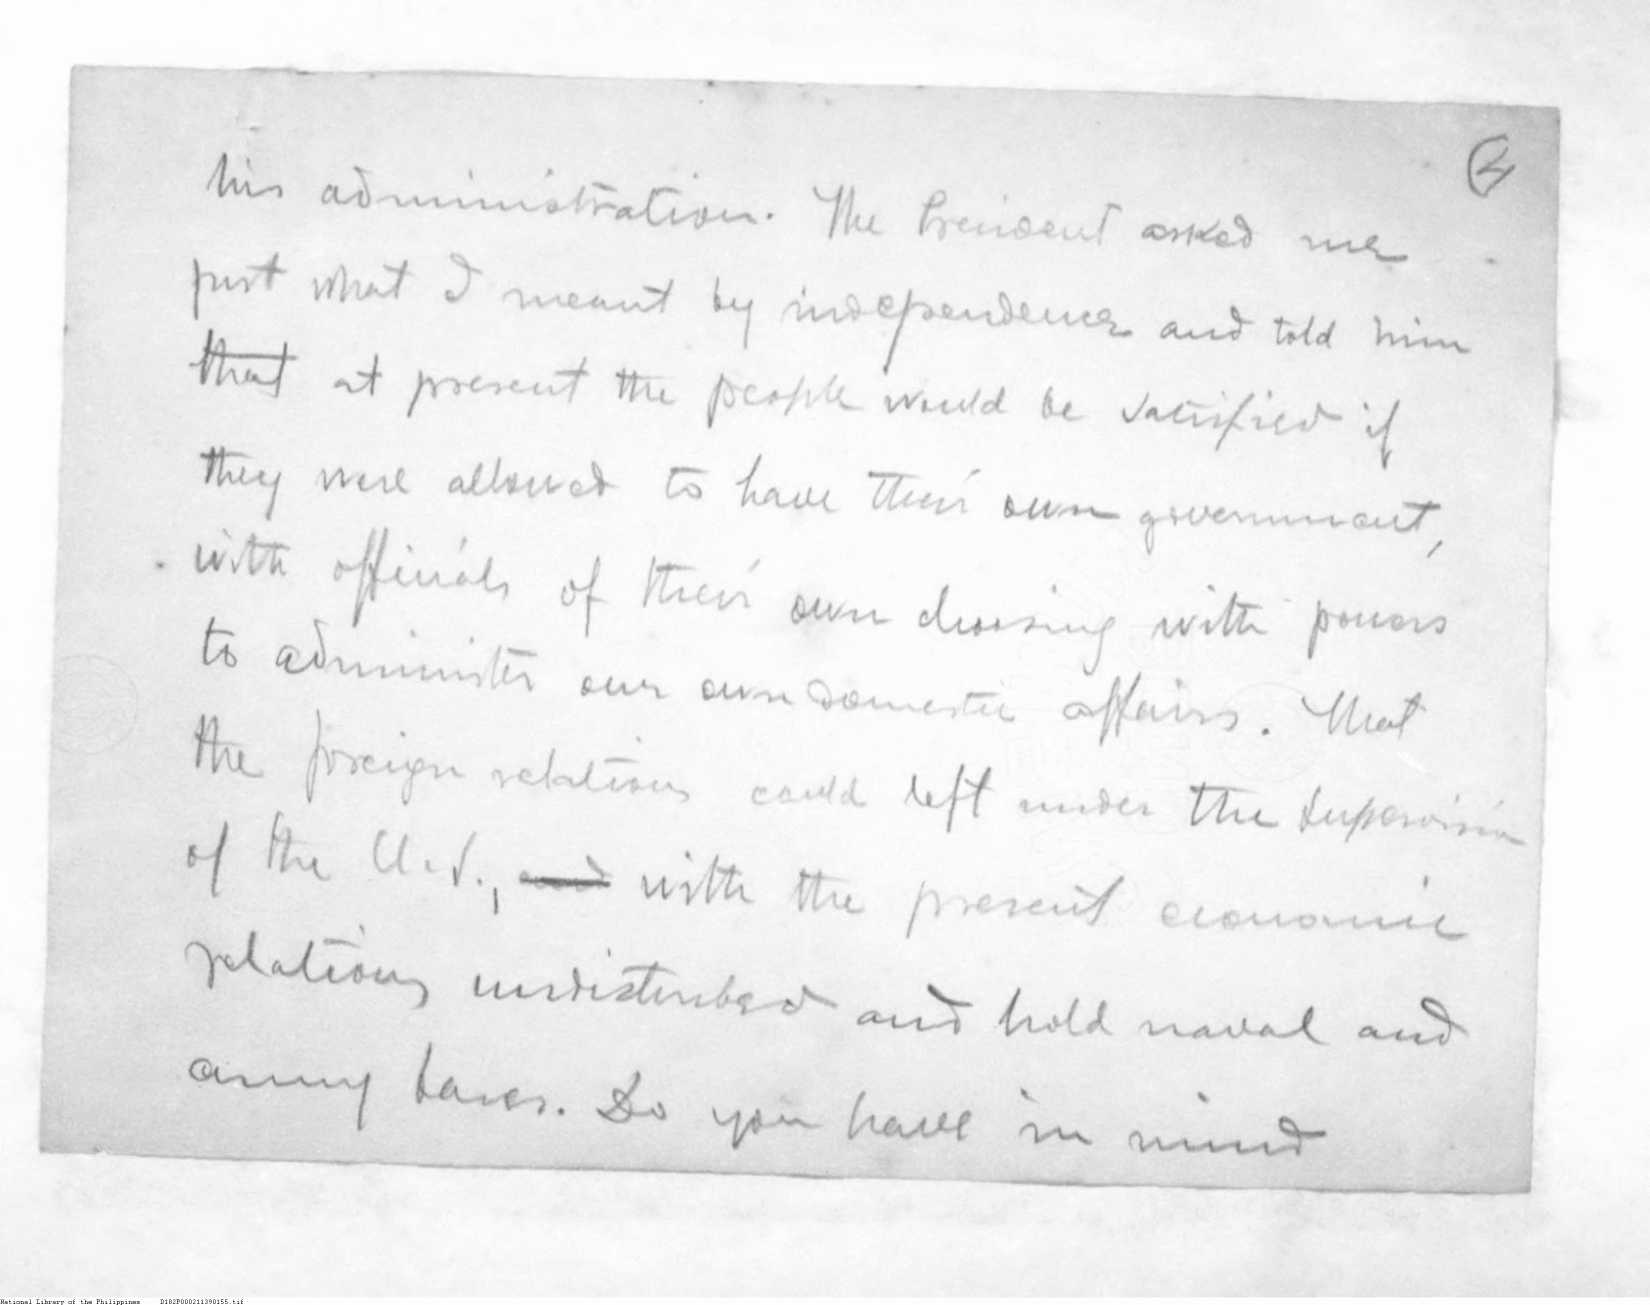 2
his administration. The President asked me
just what I meant by independence and told him
that at present the people would be satisfied if
they were allowed to have their own government,
with officials of their own choosing with powers
to administer our own domestic affairs. That
the foreign relations could left under the supervision
of the U.S., and with the present economic
relations undisturbed and hold naval and
army bases. Do you have in mind
National Library of the Philippines D182P000211390155.tif